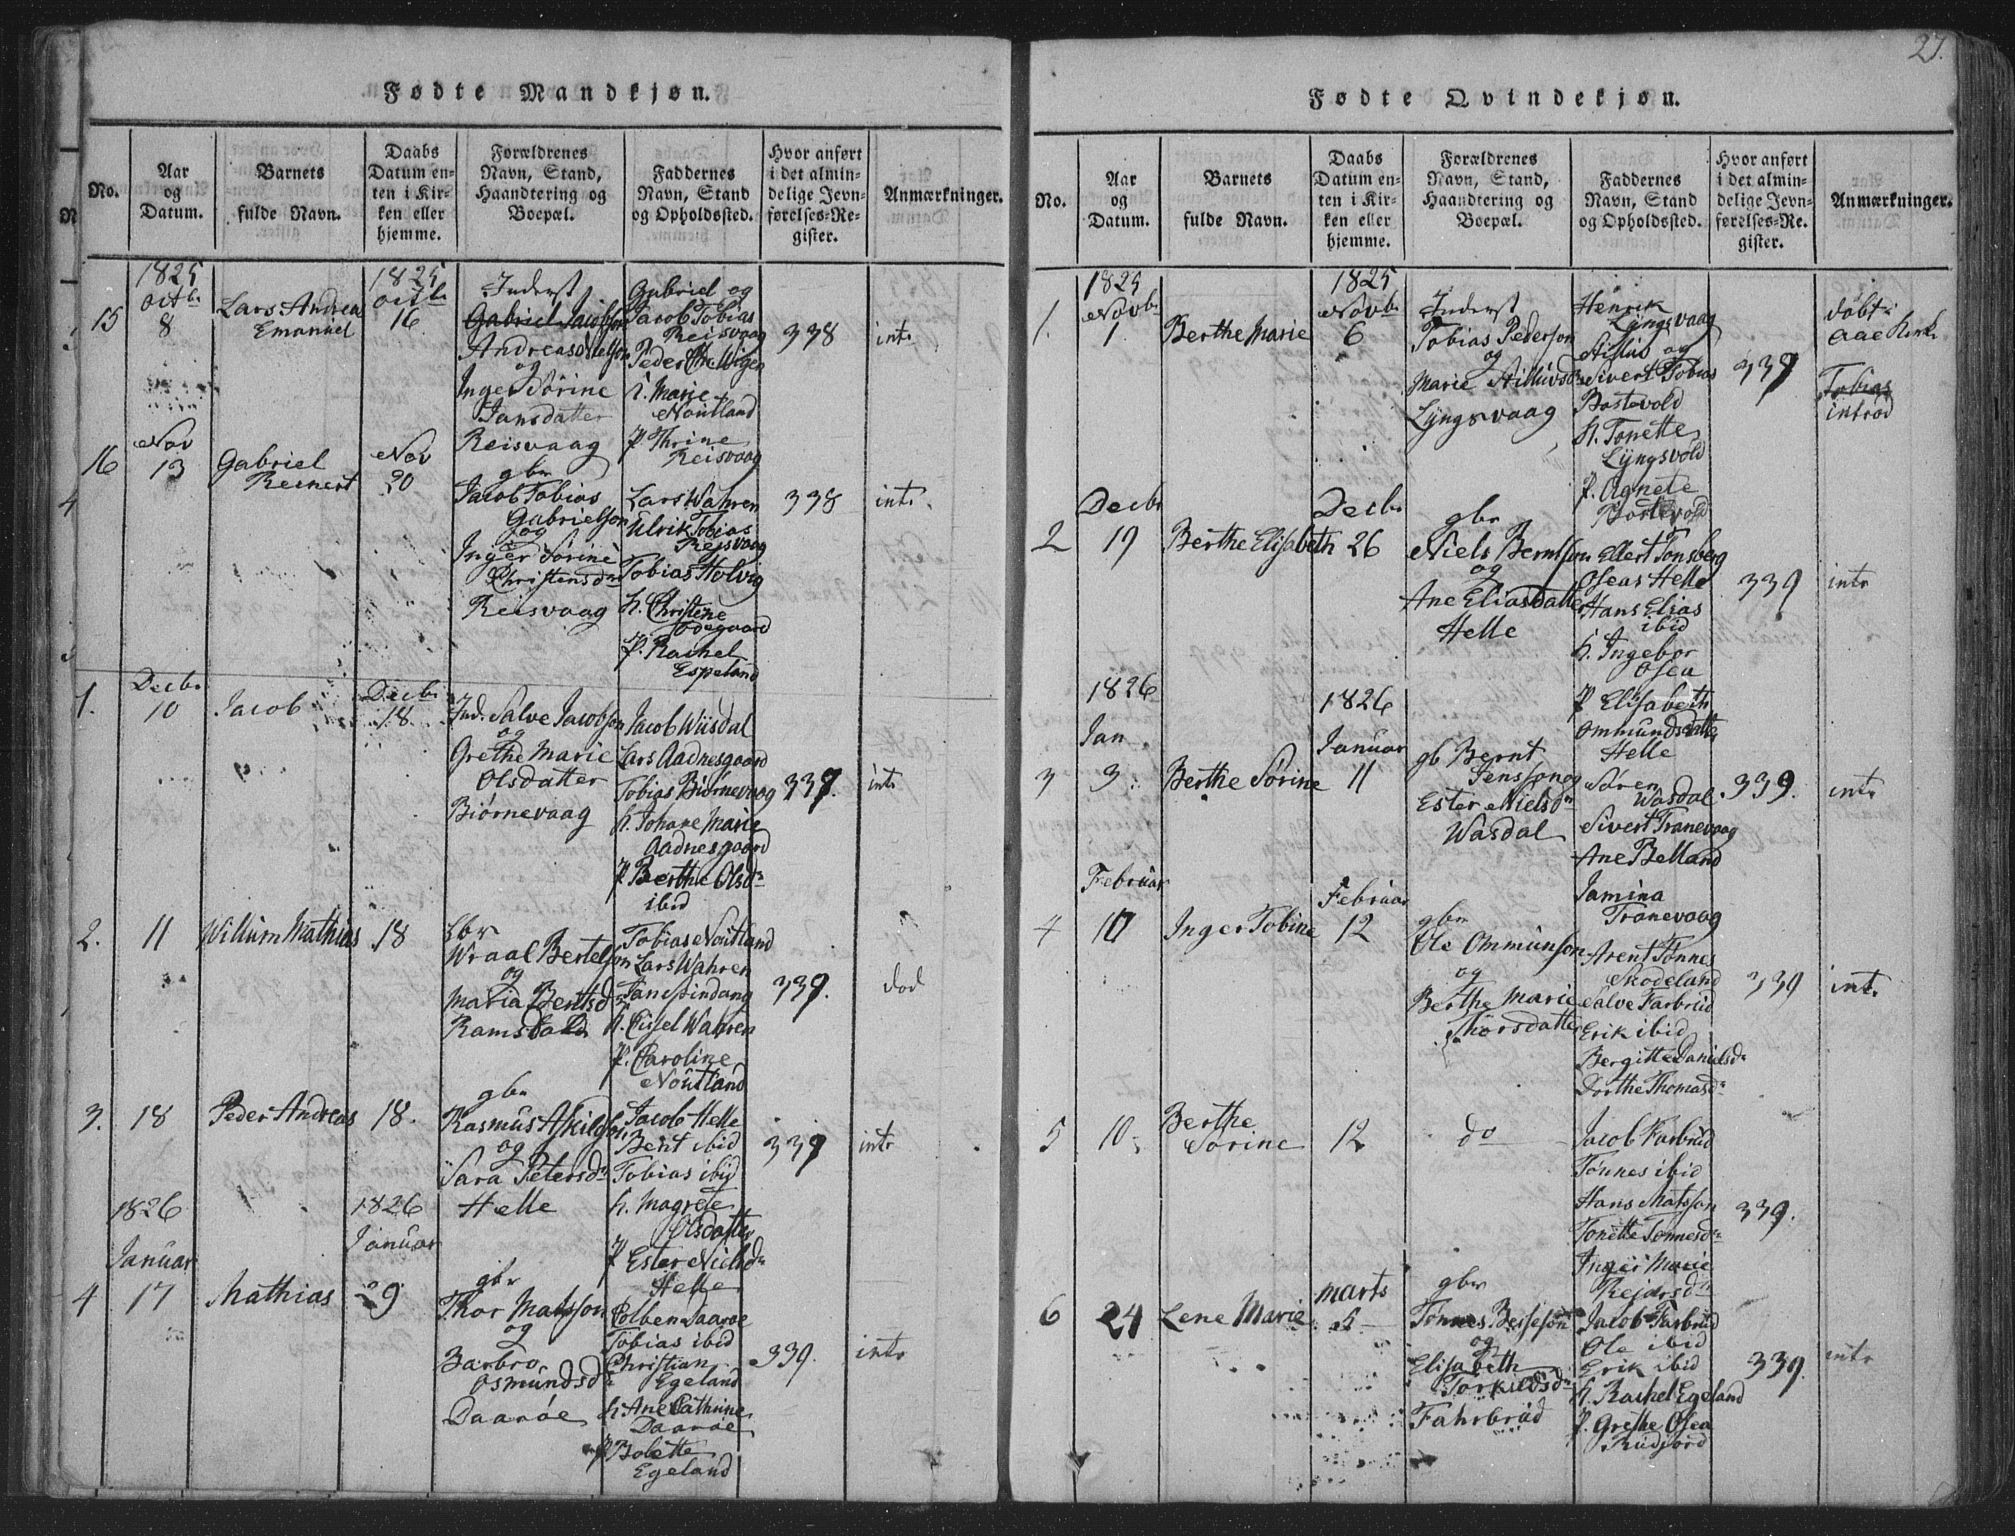 Fødte Mandkjøn.
No.
Aar
og
Datum.
Barnets
fulde Navn.
Daabs
Datum en-
ten i Kir-
ken eller
hjemme.
Forældrenes
Navn, Stand,
Haandtering og
Boepæl.
Faddernes
Navn, Stand
og Opholdssted.
Hvor anført
i det almin-
delige Jevn-
førelses-Re-
gister.
Anmærkninger.
1825
Octbr
15
8
Lars Andrea
Emanuel
1825
Octbr
16
Inderst
Gabriel Jacobson
Andreas Nielson
og
Inger Sørine
Jansdatter
Reisvaag
Gabriel og
Jacob Tobias
Reisvaag
Peder Chr Wigen
h. Marie
Noutland
P. Thrine
Reisvaag
338
intr
Nov
16
13
Gabriel
Reinert
Nov
20
gbr
Jacob Tobias
Gabrielson
og
Inger Sorine
Christensdr
Reisvaag
Lars Wahren
Ulrik Tobias
Reisvaag
Tobias Holvig
h. Christine
Ødegaard
P. Rachel
Espeland
338
intr.
Decbr
1.
10
Jacob
Decbr
18.
Ind. Salve Jacobson
og
Grethe Marie
Olsdatter
Biørnevaag
Jacob Wiisdal
Lars Aadnesgaard
Tobias Biørnevaag
h. Johane Marie
Aadnesgaard
P Berthe Olsdr
ibid
339.
intr
2.
11
Willum Mathias
18
gbr
Wraal Bertelson
og
Maria Berttsdr
Ramsbald
Tobias Noutland
Lars Wahren
Jan Spindang
h. Cissel Wahren
P. Caroline
Noutland
339.
dod
3.
18
Peder Andreas
18.
gbr
Rasmus Askilds.
og
Sara Petersdr
Helle
Jacob Helle
Bent ibid
Tobias ibid
h. Magrete
Olsdatter
P Ester Nielsdr
Helle
339
intr
1826
Januar
4
17
Mathias
1826
Januar
29
gbr
Thor Matsson
og
Barbro
Osmundsdr
Daarøe
Colben Daarøe
Tobias ibid
Christian
Egeland
h Ane Cathrine
Daarøe
P Bolette
Egeland
339.
intr
27.
Fødte Qvindekjøn.
No.
Aar
og
Datum.
Barnets
fulde Navn.
Daabs
Datum en-
ten i Kir-
ken eller
hjemme.
Forældrenes
Navn, Stand,
Haandtering og
Boepæl.
Faddernes
Navn, Stand
og Opholdssted.
Hvor anført
i det almin-
delige Jevn-
førelses-Re-
gister.
Anmærkninger.
1825
Novbr
1.
1
Berthe Marie
1825
Novbr
6
Inderst
Tobias Pederson
og
Marie Atlluvsdr
Lyngsvaag
Henrik
Lyngsvaag
og
Sivert Tobias
Bostevold
h. Tonette
Lyngsvold
P. Agnete
Bostevold
339
døbt i
Aae Kirk.
Tobias
introd
Decbr
2
19
Berthe Elisabeth
Decbr
26
gbr
Niels Berntson
og
Ane Eliasdatter
Helle
Ellert Tonsberg
Oseas Helle
Hans Elias
ibid
h. Ingebor
Osea
P Elisabeth
Ommundsdatter
Helle
339
intr
1826
Jan.
3
3.
Berthe Sørine
1826
Januar
11
gb Bernt
Jensson og
Ester Nielsdr
Wasdal
Søren
Wasdal
Sivert Tranevaag
Ane Belland
Jamina
Tranevaag
339.
intr
Februar
4
10
Inger Tobine
Februar
12
gbr
Ole Ommunson
og
Berthe Marie
Thorsdatter
Arent Tønnes
Skodeland
Salve Farbrud
Erik ibid
Bergitte Danielsdr
Dorthe Thomasdr
339
intr
5
10.
Berthe
Sorine
12
do
Jacob Farbrud
Tønnes ibid
Hans Matsson
Tonette Tønnesdr
Inger Marie
Rejersdr
339.
6
24
Lene Marie
marts
5
gbr
Tønnes Besseson
og
Elisabeth
Torkildsdr
Fahrbrud
Jacob Farbrud
Ole ibid
Erik ibid
h. Rachel Egeland
P. Grethe Osea
Rudsjord
339.
intr